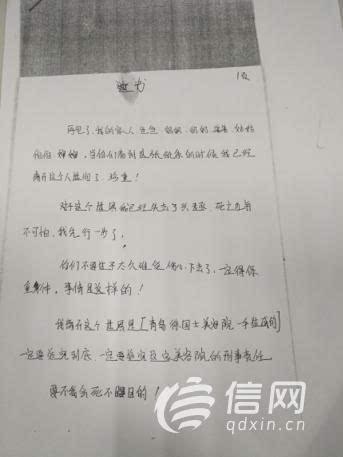 遗书
1页
再见了,我的家人 爸爸 妈妈
当你们看到这张纸条的时候 我已经
离开这个人世间了,珍重!
对于这个世界我已经失去了兴趣,死亡并
不可怕,我先行一步了,
你们不要过于太久难受 伤心 下去了,一定得保
重身体,事情是这样的!
我离开这个世界是[青岛德国士美容院一手造成的]
一定要追究到底,一定要追究这家美容院的刑事责任
要不我会死不瞑目的!
信网
qdxin.cn